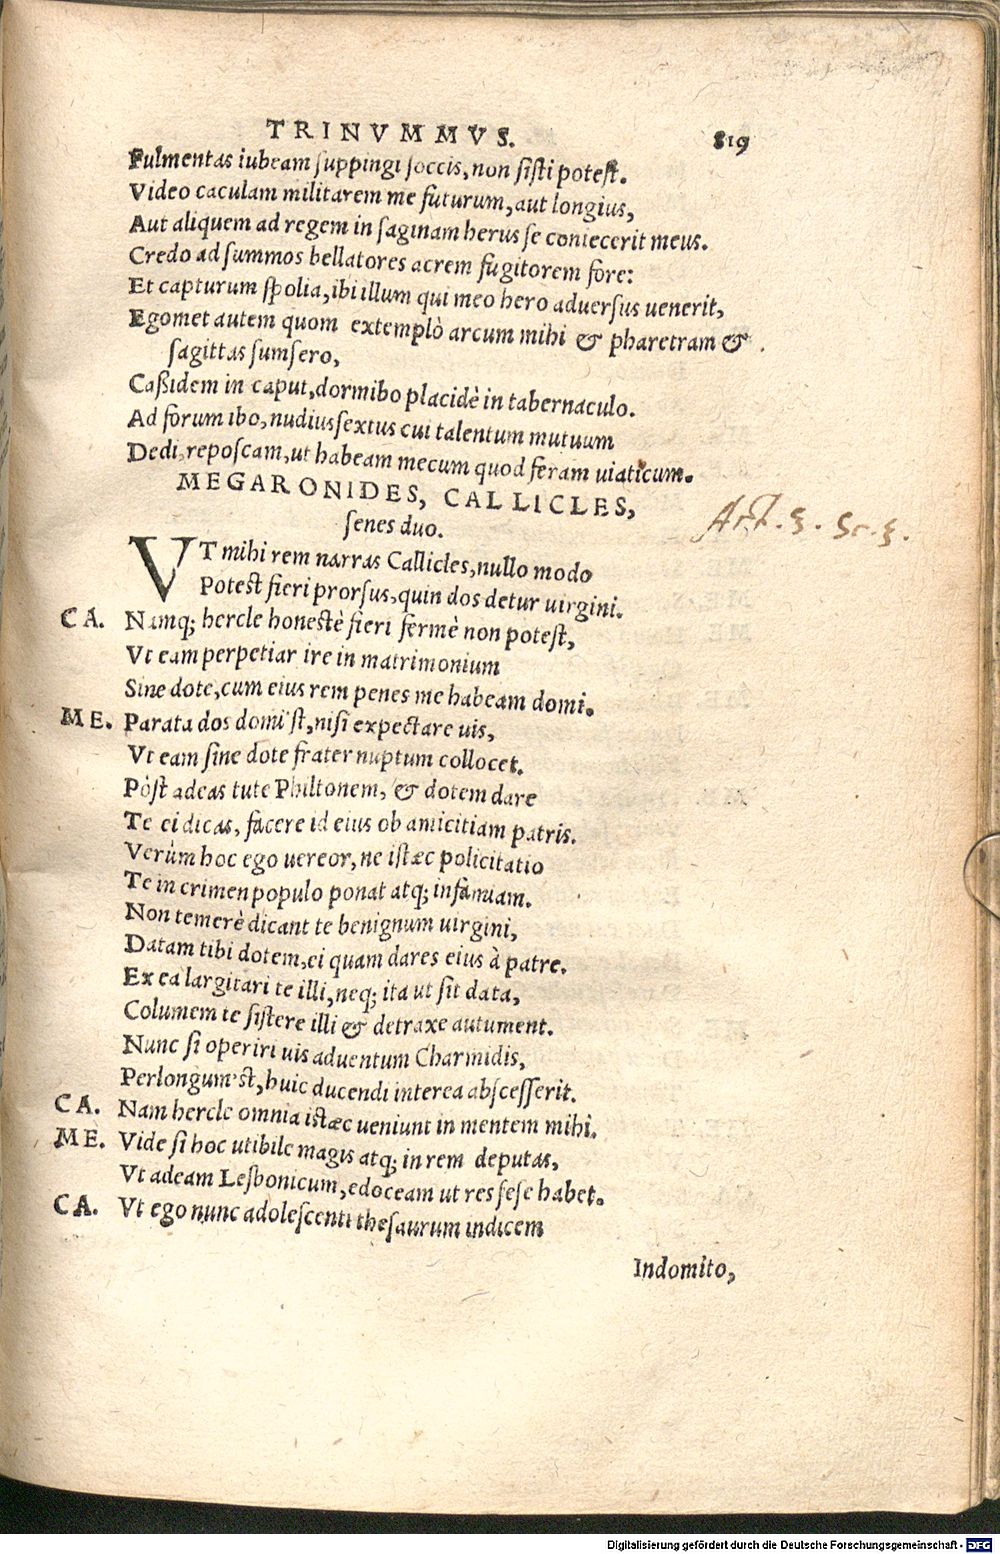 TRINVMMVS. 819
Fulmentas iubeam suppingi soccis, non sisti potest.
Video caculam militarem me futurum, aut longius,
Aut aliquem ad regem in saginam herus se coniecerit meus.
Credo ad summos bellatores acrem fugitorem fore:
Et capturum spolia, ibi illum qui meo hero aduersus uenerit,
Egomet autem quom extemplò arcum mihi & pharetram &
sagittas sumsero,
Caßidem in caput, dormibo placidè in tabernaculo.
Ad forum ibo, nudiussextus cui talentum mutuum
Dedi, reposcam, ut habeam mecum quod feram uiaticum.
MEGARONIDES, CALLICLES,
senes duo.
Act. 3. Sc. 3.
VT mihi rem narras Callicles, nullo modo
Potest fieri prorsus, quin dos detur uirgini.
CA. Namq; hercle honestè fieri fermè non potest,
Vt eam perpetiar ire in matrimonium
Sine dote, cum eius rem penes me habeam domi.
ME. Parata dos domi'st, nisi expectare uis,
Vt eam sine dote frater nuptum collocet.
Pòst adeas tute Philtonem, & dotem dare
Te ei dicas, facere id eius ob amicitiam patris.
Verùm hoc ego uereor, ne istæc policitatio
Te in crimen populo ponat atq; infamiam.
Non temerè dicant te benignum uirgini,
Datam tibi dotem, ei quam dares eius à patre.
Ex ea largitari te illi, neq; ita ut sit data,
Columem te sistere illi & detraxe autument.
Nunc si operiri uis aduentum Charmidis,
Perlongum'st, huic ducendi interea abscesserit.
CA. Nam hercle omnia istæc ueniunt in mentem mihi.
ME. Vide si hoc utibile magis atq; in rem deputas,
Vt adeam Lesbonicum, edoceam ut res sese habet.
CA. Vt ego nunc adolescenti thesaurum indicem
Indomito,
Digitalisierung gefördert durch die Deutsche Forschungsgemeinschaft - DFG